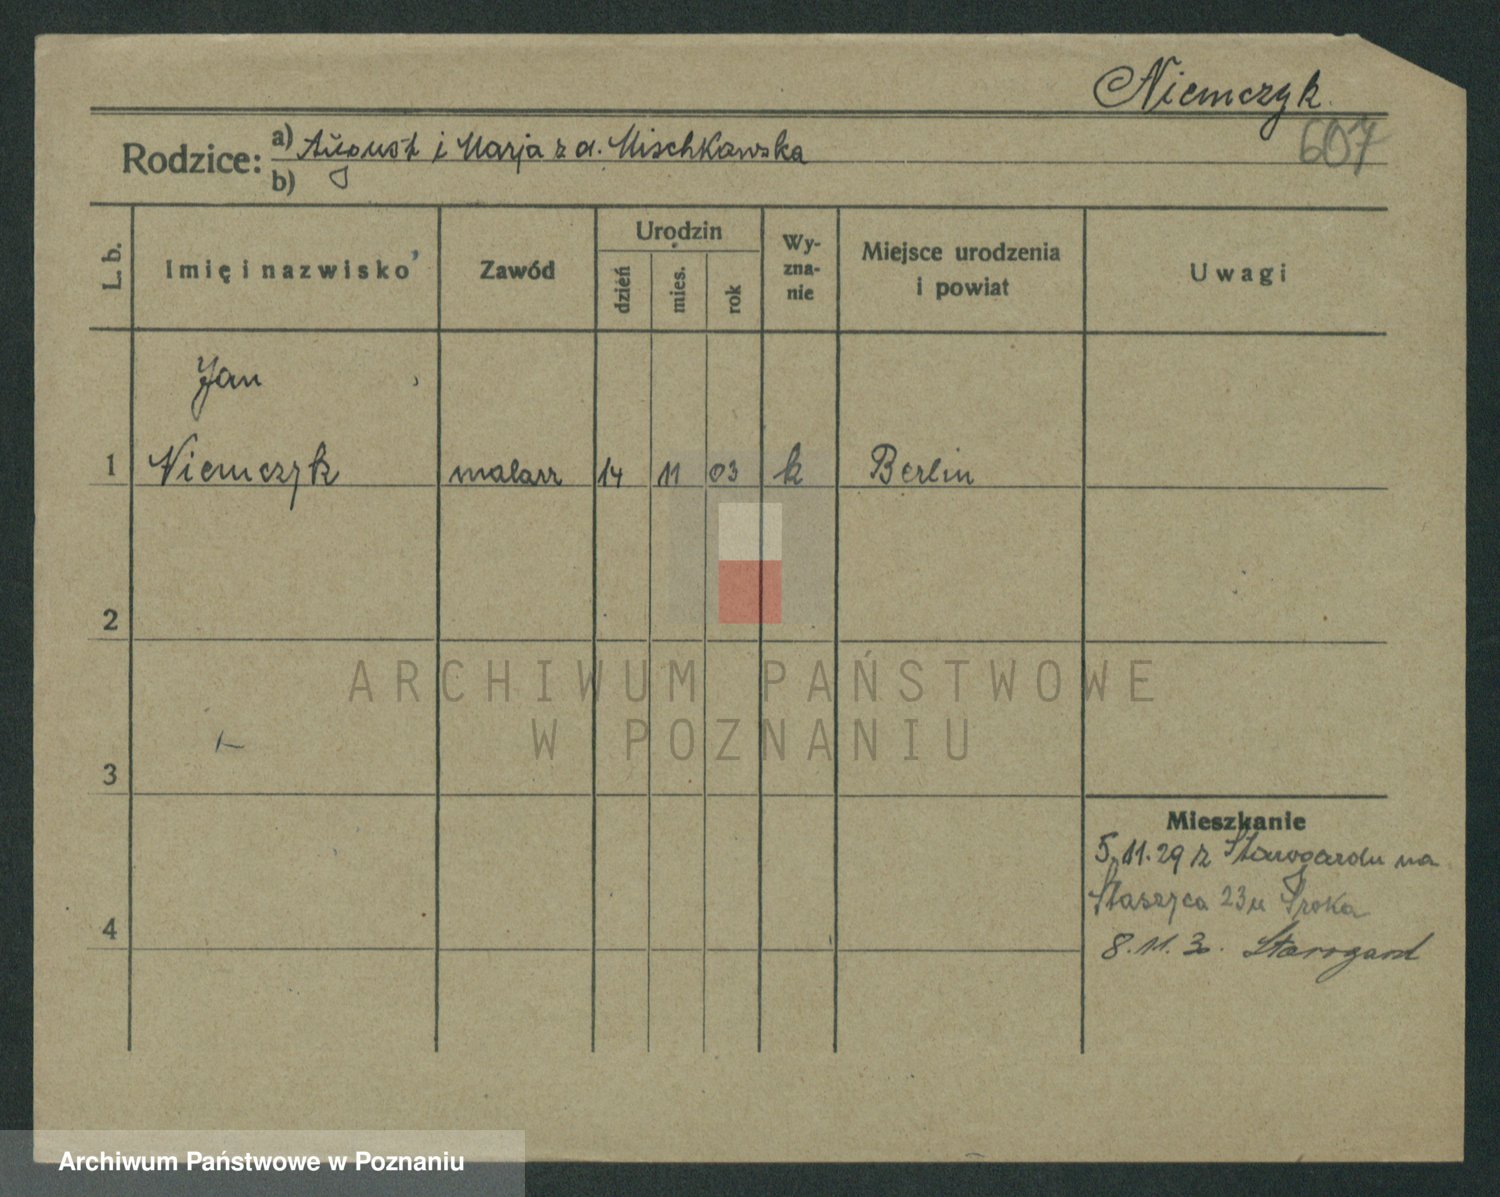 Niemczyk.
607
Rodzice: a) August i Marja z d. Mischkowska
b)
L. b.
Imię i nazwisko
Zawód
Urodzin
dzień
mies.
rok
Wy-
zna-
nie
Miejsce urodzenia
i powiat
Uwagi
Jan
1 Niemczyk malarz 14 11 03 k Berlin
2
3
4
Mieszkanie
5.11.29 z Starogardu na
Staszyca 23 u Sroka
8.11.30. Starogard
ARCHIWUM PAŃSTWOWE
W POZNANIU
Archiwum Państwowe w Poznaniu